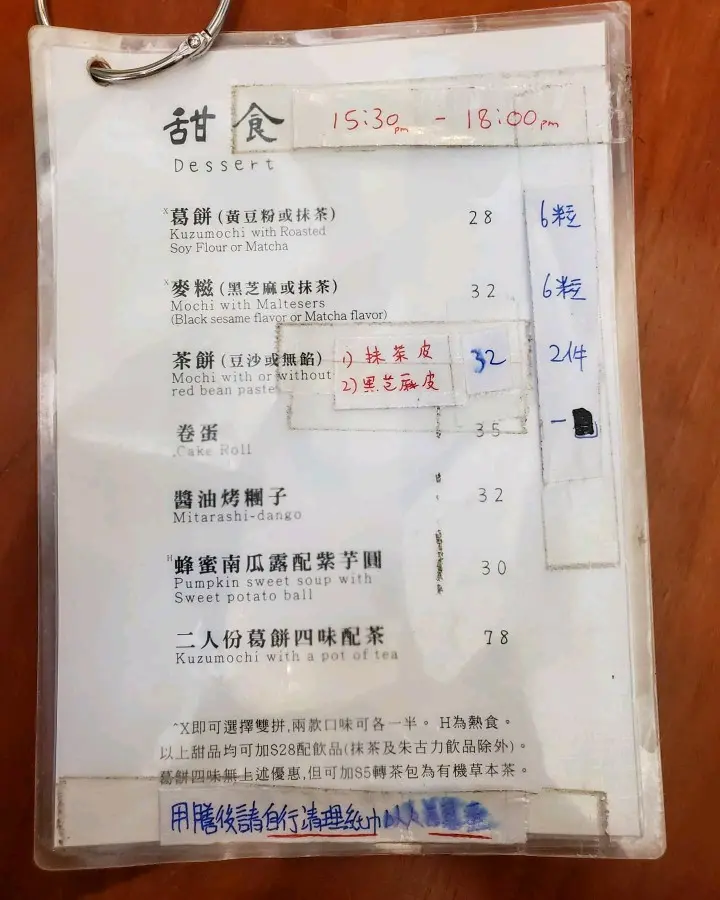 甜食 15:30pm - 18:00pm
Dessert
X葛餅(黃豆粉或抹茶) 28 6粒
Kuzumochi with Roasted
Soy Flour or Matcha
X麥糍(黑芝麻或抹茶) 32 6粒
Mochi with Maltesers
(Black sesame flavor or Matcha flavor)
茶餅(豆沙或無餡) 1) 抹茶皮 32 2件
Mochi with or without 2)黑芝麻皮
red bean paste
卷蛋 35 一
Cake Roll
醬油烤糰子 32
Mitarashi-dango
H蜂蜜南瓜露配紫芋圓 30
Pumpkin sweet soup with
Sweet potato ball
二人份葛餅四味配茶 78
Kuzumochi with a pot of tea
^X即可選擇雙拼,兩款口味可各一半。 H為熱食。
以上甜品均可加$28配飲品(抹茶及朱古力飲品除外)。
葛餅四味無上述優惠,但可加$5轉茶包為有機草本茶。
用膳後請自行清理紙巾